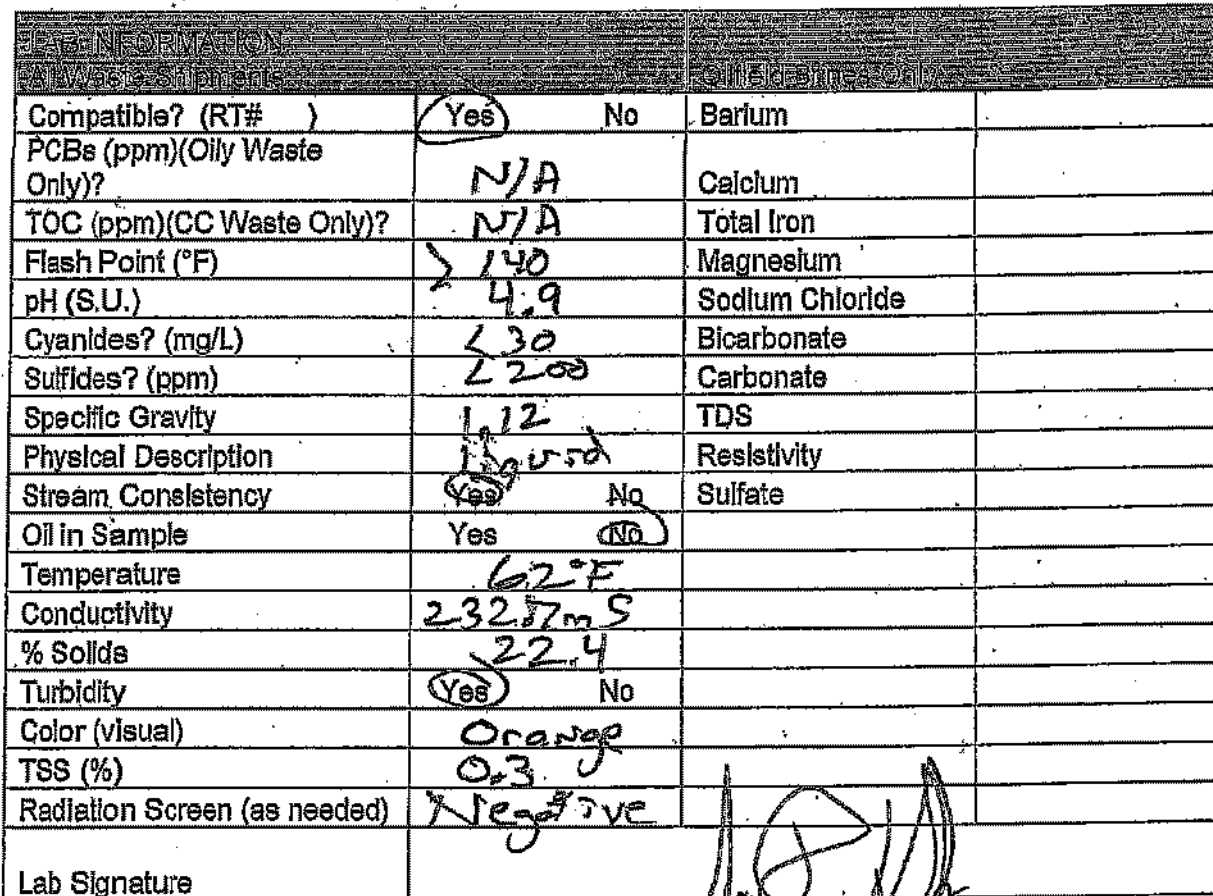 LAB INFORMATION
All Waste Shipments Oilfield Brines Only
Compatible? (RT# ) Yes No Barium
PCBs (ppm)(Oily Waste
Only)? N/A Calcium
TOC (ppm)(CC Waste Only)? N/A Total Iron
Flash Point (°F) > 140 Magnesium
pH (S.U.) 4.9 Sodium Chloride
Cyanides? (mg/L) <30 Bicarbonate
Sulfides? (ppm) <200 Carbonate
Specific Gravity 1.12 TDS
Physical Description Liquid Resistivity
Stream Consistency Yes No Sulfate
Oil in Sample Yes No
Temperature 62°F
Conductivity 232.7mS
% Solids 22.4
Turbidity Yes No
Color (visual) Orange
TSS (%) 0.3
Radiation Screen (as needed) Negative
Lab Signature